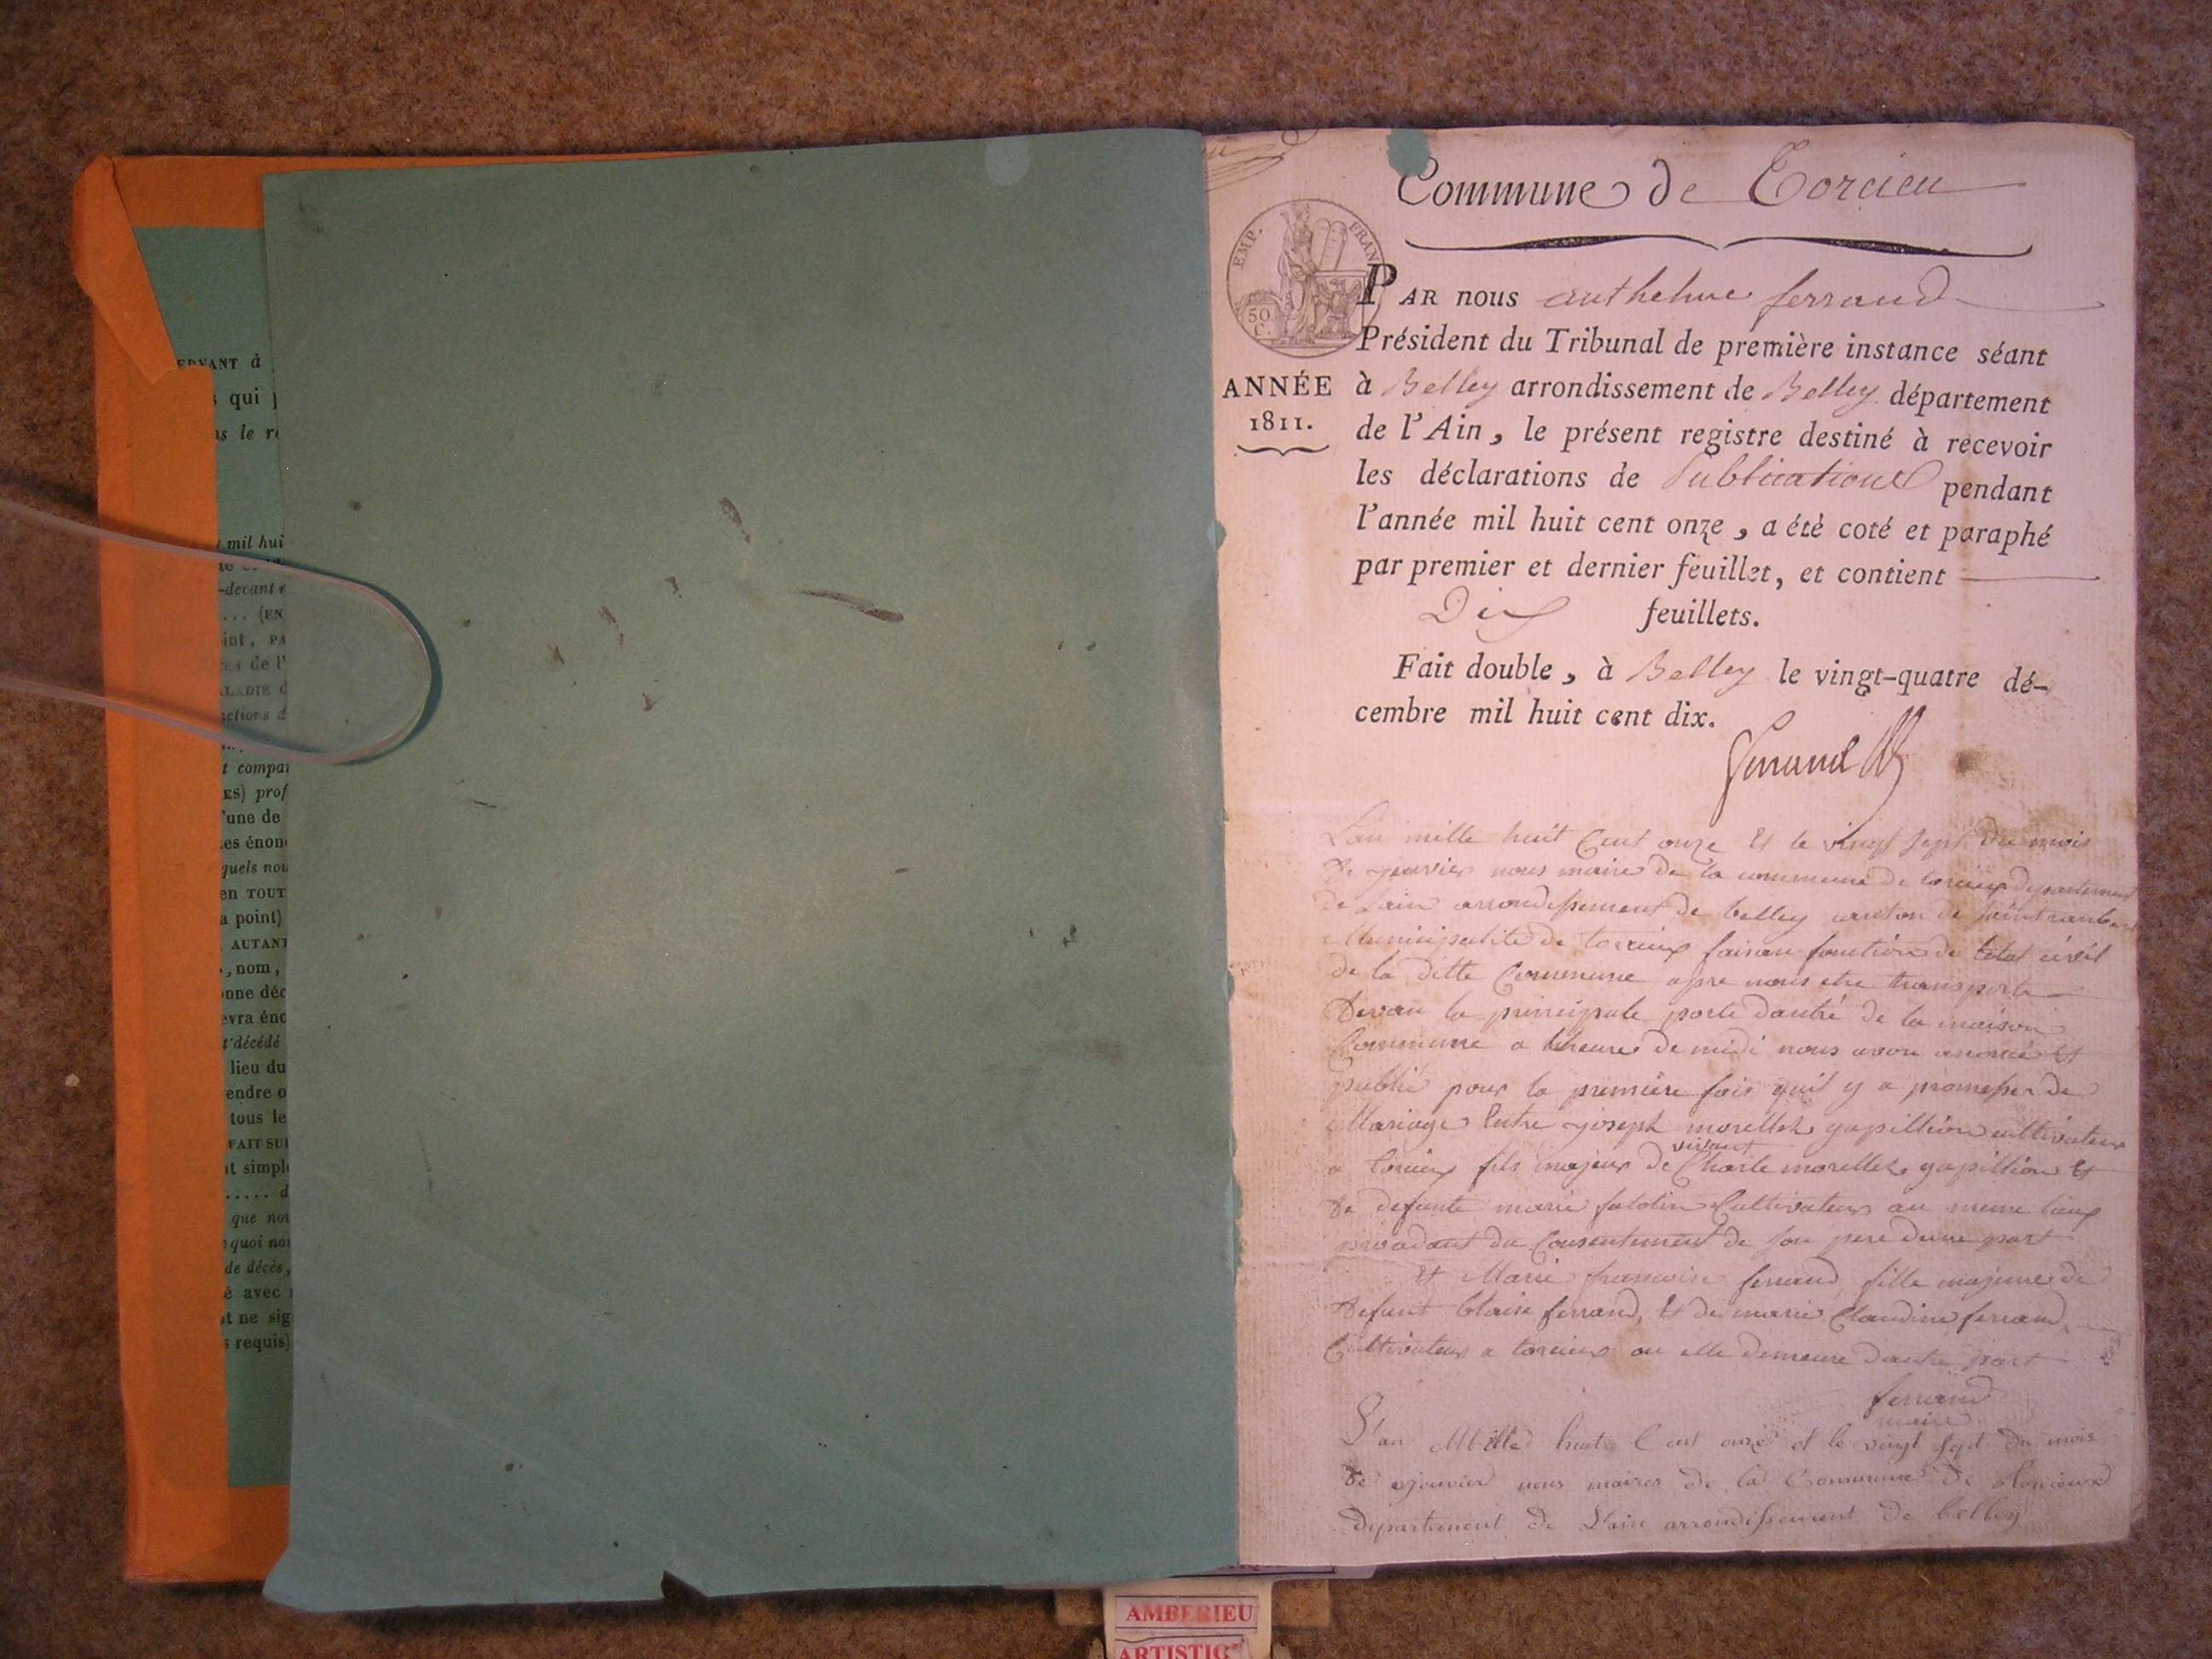 ERVANT à
s qui
ns le re
mil hui
-devant
... (EN
int, PA
res de l'
ALADIE d
nctions d
t compar
ES) prof
'une de
es énon
quels nou
en TOUT
a point)
AUTANT
, nom,
onne déc
evra éno
t décédé
lieu du
endre o
tous le
FAIT SUR
t simple
..... d
que nou
quoi nou
de décès,
é avec
t ne sig
s requis)
Commune de Torcieu
EMP. FRAN
50
C.
PAR nous anthelme ferrand
Président du Tribunal de première instance séant
ANNÉE
1811.
à Belley arrondissement de Belley département
de l'Ain, le présent registre destiné à recevoir
les déclarations de Publications pendant
l'année mil huit cent onze, a été coté et paraphé
par premier et dernier feuillet, et contient
Dix feuillets.
Fait double, à Belley le vingt-quatre dé-
cembre mil huit cent dix.
ferrand
Lan mille huit Cent onze Et le vingt sept du mois
de janvier nous maire de la commune de torcieux departement
de Lain arrondissement de belley canton de saint rambert
Municipalité de torcieux faisan fonction de letat civil
de la ditte Commune apre nous etre transporté
devan la principale porte dantré de la maison
Commune a lheure de midi nous avon anoncé Et
publié pour la premiere fois quil y a promesse de
Mariage Entre joseph morellet gapillion cultivateur
vivant
a torcieux fils majeur de Charle morellet gapillion Et
de defunte marie Cultivateur au meme lieux
du Consentement de son pere dune part
Et Marie francoise ferrand, fille majeure de
defunt blaise ferrand, Et de marie Claudine ferrand,
Cultivateur a torcieux ou elle demeure dautre part
ferrand
maire
L'an Mille huit Cent onze et le vingt sept du mois
de janvier nous maires de la Commune de torcieux
Departement de L'ain arrondissement de belley
AMBERIEU
ARTISTIC